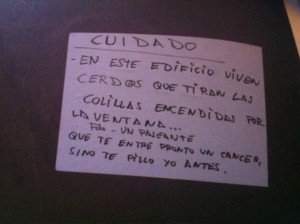 CUIDADO
- EN ESTE EDIFICIO VIVEN
CERD@S QUE TIRAN LAS
COLILLAS ENCENDIDAS POR
LA VENTANA...
Fdo - UN PASEANTE
QUE TE ENTRE PRONTO UN CANCER,
SINO TE PILLO YO ANTES.